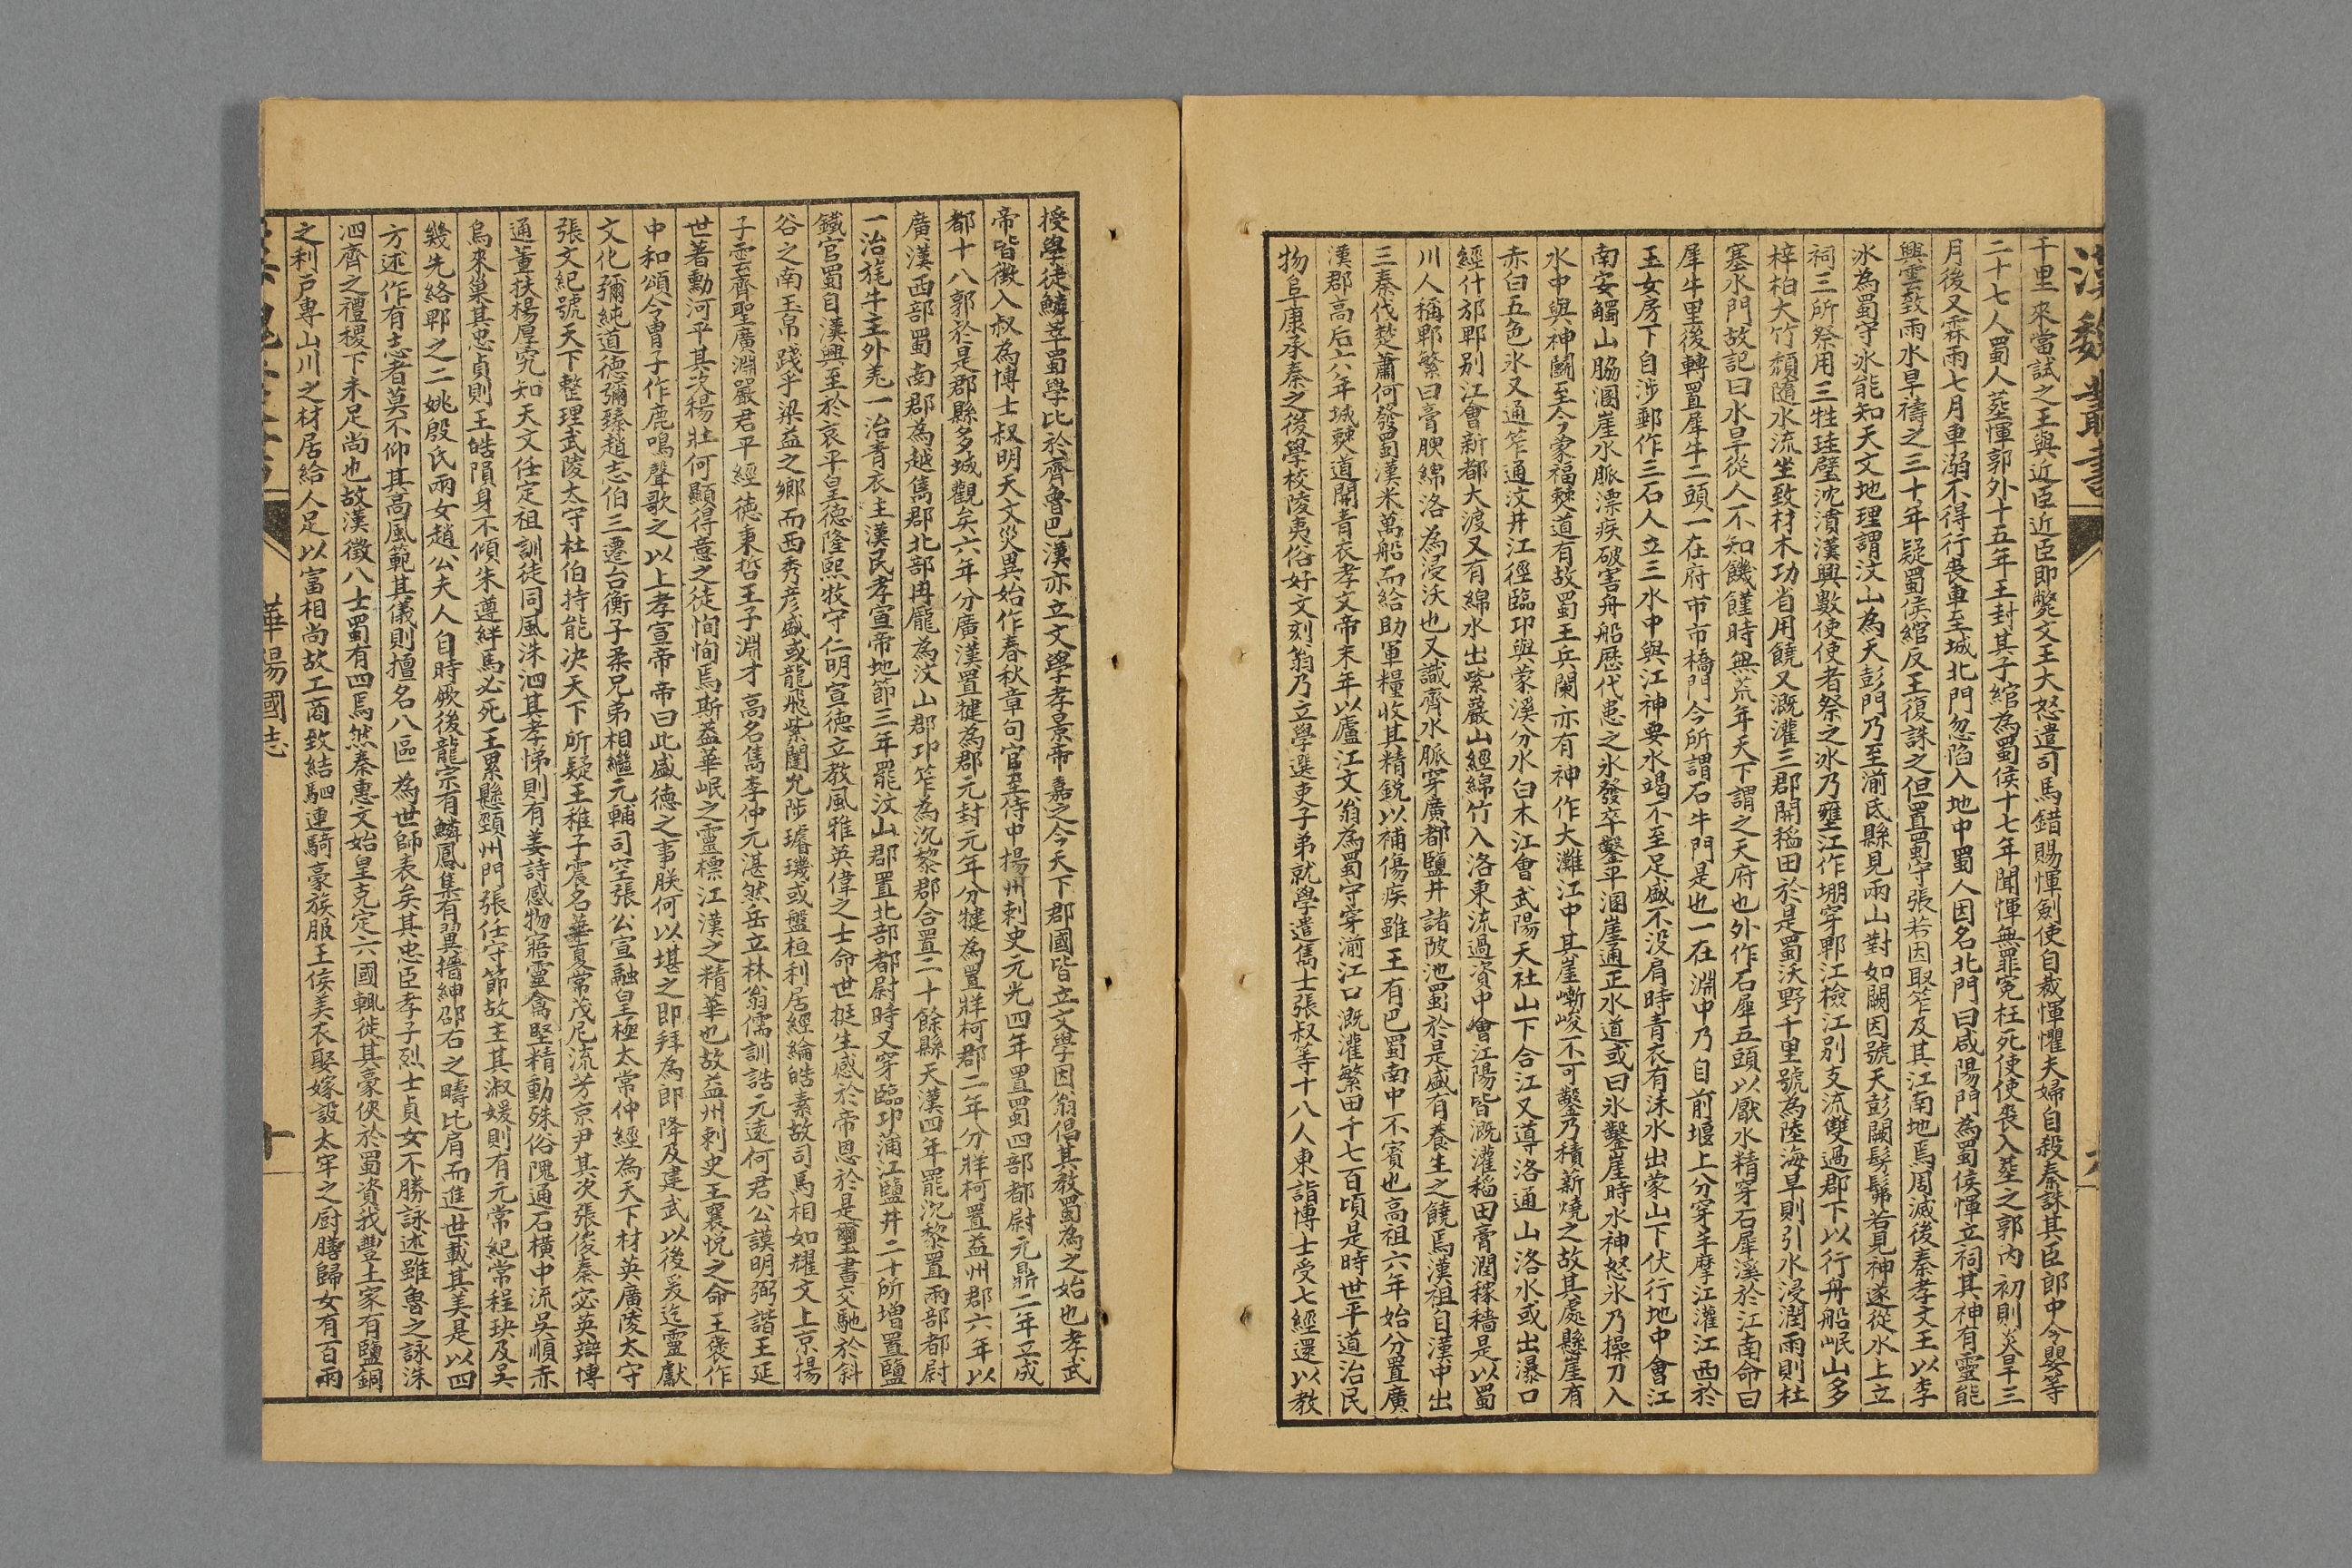 漢魏叢書
千里來當試之王與近臣近臣即斃文王大怒遣司馬錯賜惲劍使自裁惲懼夫婦自殺秦誅其臣郎中令嬰等
二十七人蜀人葬惲郭外十五年王封其子綰為蜀侯十七年聞惲無罪冤枉死使使喪入葬之郭內初則炎旱三
月後又霖雨七月車溺不得行喪車至城北門忽陷入地中蜀人因名北門曰咸陽門為蜀侯惲立祠其神有靈能
興雲致雨水旱禱之三十年疑蜀侯綰反王復誅之但置蜀守張若因取笮及其江南地焉周滅後秦孝文王以李
冰為蜀守冰能知天文地理謂汶山為天彭門乃至湔氐縣見兩山對如闕因號天彭闕髣髴若見神遂從水上立
祠三所祭用三牲珪璧沈濆漢興數使使者祭之冰乃壅江作堋穿郫江檢江別支流雙過郡下以行舟船岷山多
梓柏大竹頹隨水流坐致材木功省用饒又溉灌三郡開稻田於是蜀沃野千里號為陸海旱則引水浸潤雨則杜
塞水門故記曰水旱從人不知饑饉時無荒年天下謂之天府也外作石犀五頭以厭水精穿石犀溪於江南命曰
犀牛里後轉置犀牛二頭一在府市市橋門今所謂石牛門是也一在淵中乃自前堰上分穿羊摩江灌江西於
玉女房下自涉郵作三石人立三水中與江神要水竭不至足盛不没肩時青衣有沬水出蒙山下伏行地中會江
南安觸山脇溷崖水脈漂疾破害舟船歷代患之冰發卒鑿平溷崖通正水道或曰冰鑿崖時水神怒冰乃操刀入
水中與神鬭至今蒙福僰道有故蜀王兵闌亦有神作大灘江中其崖嶃峻不可鑿乃積薪燒之故其處懸崖有
赤白五色冰又通笮通汶井江徑臨邛與蒙溪分水白木江會武陽天社山下合江又導洛通山洛水或出瀑口
經什邡郫別江會新都大渡又有綿水出紫巖山經綿竹入洛東流過資中會江陽皆溉灌稻田膏潤稼穡是以蜀
川人稱郫繁曰膏腴綿洛為浸沃也又識齊水脈穿廣都鹽井諸陂池蜀於是盛有養生之饒焉漢祖自漢中出
三秦伐楚蕭何發蜀漢米萬船而給助軍糧收其精銳以補傷疾雖王有巴蜀南中不賓也高祖六年始分置廣
漢郡高后六年城僰道開青衣孝文帝末年以廬江文翁為蜀守穿湔江口溉灌繁田千七百頃是時世平道治民
物阜康承秦之後學校陵夷俗好文刻翁乃立學選吏子弟就學遣雋士張叔等十八人東詣博士受七經還以教
授學徒鱗萃蜀學比於齊魯巴漢亦立文學孝景帝嘉之令天下郡國皆立文學因翁倡其教蜀為之始也孝武
帝皆徵入叔為博士叔明天文災異始作春秋章句官至侍中揚州刺史元光四年置蜀四部都尉元鼎二年立成
都十八郭於是郡縣多城觀矣六年分廣漢置犍為郡元封元年分犍為置牂柯郡二年分牂柯置益州郡六年以
廣漢西部蜀南郡為越雋郡北部冉厖為汶山郡邛笮為沉黎郡合置二十餘縣天漢四年罷沉黎置兩部都尉
一治旄牛主外羌一治青衣主漢民孝宣帝地節三年罷汶山郡置北部都尉時又穿臨邛蒲江鹽井二十所增置鹽
鐵官蜀自漢興至於哀平皇德隆熙牧守仁明宣德立教風雅英偉之士命世挺生感於帝思於是璽書交馳於斜
谷之南玉帛踐乎梁益之鄉而西秀彥盛或龍飛紫闥允陟璿璣或盤桓利居經綸皓素故司馬相如耀文上京揚
子雲齊聖廣淵嚴君平經德秉哲王子淵才高名雋李仲元湛然岳立林翁儒訓誥元遠何君公謨明弼諧王延
世著勳河平其次楊壯何顯得意之徒恂恂焉斯葢華岷之靈標江漢之精華也故益州刺史王襄悅之命王褒作
中和頌令胄子作鹿鳴聲歌之以上孝宣帝帝曰此盛德之事朕何以堪之即拜為郎降及建武以後爰迄靈獻
文化彌純道德彌臻趙志伯三遷台衡子柔兄弟相繼元輔司空張公宣融皇極太常仲經為天下材英廣陵太守
張文紀號天下整理武陵太守杜伯持能決天下所疑王稚子震名華夏常茂尼流芳京尹其次張俊秦宓英辯博
通董扶楊厚究知天文任定祖訓徒同風洙泗其孝悌則有姜詩感物寤靈禽堅精動殊俗隗通石橫中流吳順赤
烏來巢其忠貞則王皓隕身不傾朱遵絆馬必死王累懸頸州門張任守節故主其淑媛則有元常紀常程玦及吳
幾先絡郫之二姚殷氏兩女趙公夫人自時厥後龍宗有鱗鳳集有翼搢紳邵右之疇比肩而進世載其美是以四
方述作有志者莫不仰其高風範其儀則擅名八區為世師表矣其忠臣孝子烈士貞女不勝詠述雖魯之詠洙
泗齊之禮稷下未足尚也故漢徵八士蜀有四焉然秦惠文始皇克定六國輒徙其豪俠於蜀資我豐土家有鹽銅
之利戶專山川之材居給人足以富相尚故工商致結駟連騎豪族服王侯美衣娶嫁設太牢之厨膳歸女有百兩
華陽國志
十